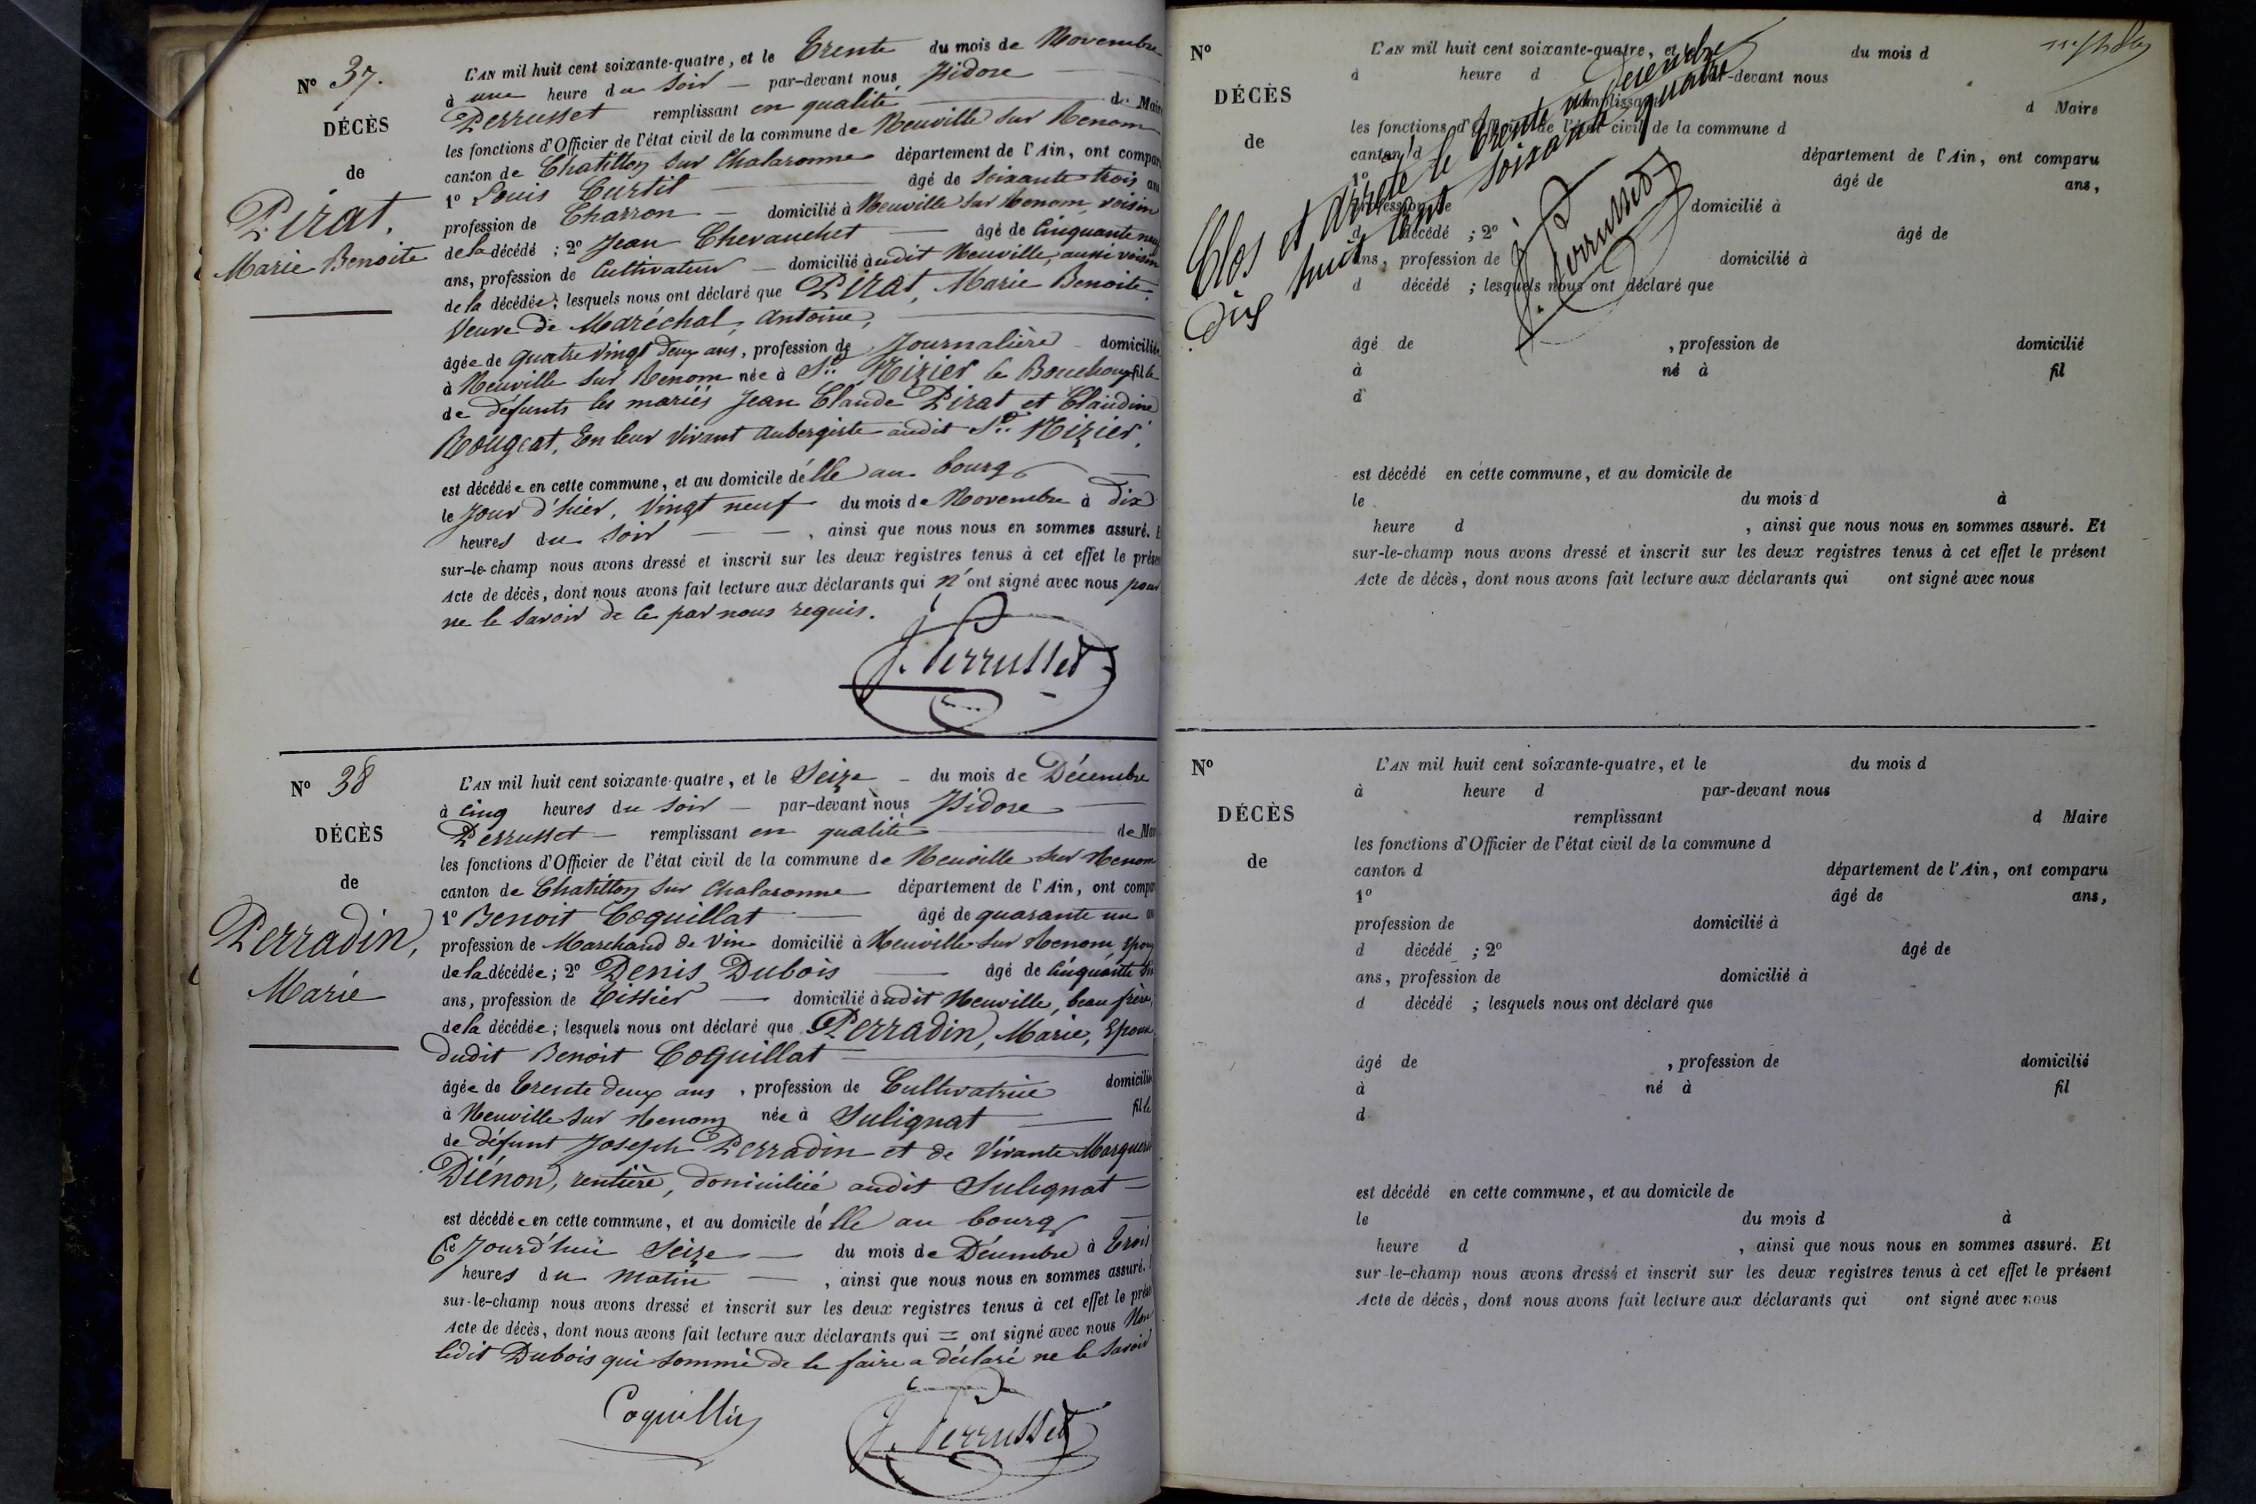 N° 37.
DÉCÈS
de
Pirat,
Marie Benoite
L'AN mil huit cent soixante-quatre, et le Trente du mois de Novembre
à une heure du soir — par-devant nous Isidore
Perrusset remplissant en qualité de Maire
les fonctions d'Officier de l'état civil de la commune de Neuville sur Renom
canton de Chatillon sur Chalaronne département de l'Ain, ont compar
1° Louis Curtil âgé de soixante trois ans
profession de Charron — domicilié à Neuville sur Renom, voisin
de la décédé ; 2° Jean Chevauchet âgé de Cinquante neuf
ans, profession de Cultivateur — domicilié à udit Neuville, aussi voisin
de la décédée ; lesquels nous ont déclaré que Pirat, Marie Benoite,
Veuve de Maréchal, Antoine,
âgée de quatre vingt deux ans, profession de Journalière domicilié
à Neuville sur Renom née à St. Nizier le Bouchoux fille
de défunts les mariés Jean Claude Pirat et Claudine
Rougeat, En leur vivant aubergiste audit St. Nizier,
est décédée en cette commune, et au domicile d'elle au bourg
le Jour d'hier, Vingt neuf du mois de Novembre à dix
heures du soir — , ainsi que nous nous en sommes assuré. E
sur-le-champ nous avons dressé et inscrit sur les deux registres tenus à cet effet le présen
Acte de décès, dont nous avons fait lecture aux déclarants qui n'ont signé avec nous pour
ne le savoir de ce par nous requis.
J. Perrusset
N° 38
DÉCÈS
de
Perradin,
Marie
L'AN mil huit cent soixante-quatre, et le Seize — du mois de Décembre
à cinq heures du soir — par-devant nous Isidore
Perrusset — remplissant en qualité de Mai
les fonctions d'Officier de l'état civil de la commune de Neuville sur Renom
canton de Chatillon sur Chalaronne département de l'Ain, ont compa
1° Benoit Coquillat âgé de quarante un an
profession de Marchand de Vin domicilié à Neuville sur Renom, Epoux
de la décédée ; 2° Denis Dubois âgé de Cinquante six
ans, profession de Tissier — domicilié à udit Neuville, beau frère,
de la décédée ; lesquels nous ont déclaré que Perradin, Marie, Epouse
dudit Benoit Coquillat
âgée de Trente deux ans, profession de Cultivatrice domicilié
à Neuville sur Renom née à Sulignat fille
de défunt Joseph Perradin et de Vivante Marguerit
Diénon, rentière, domiciliée audit Sulignat —
est décédée en cette commune, et au domicile d'elle au bourg
Ce Jourd'hui Seize — du mois de Décembre à Trois
heures du matin — , ainsi que nous nous en sommes assuré.
sur-le-champ nous avons dressé et inscrit sur les deux registres tenus à cet effet le prése
Acte de décès, dont nous avons fait lecture aux déclarants qui = ont signé avec nous Non
ledit Dubois qui sommé de le faire a déclaré ne le savoir
J. Perrusset
N°
DÉCÈS
de
L'AN mil huit cent soixante-quatre, et le du mois d
à heure d par-devant nous
remplissant d Maire
les fonctions d'Officier de l'état civil de la commune d
canton d département de l'Ain, ont comparu
1° âgé de ans,
profession de domicilié à
d décédé ; 2° âgé de
ans, profession de domicilié à
d décédé ; lesquels nous ont déclaré que
Clos et arrêté le trente un Décembre
dix huit cent soixante quatre
J. Perrusset
âgé de , profession de domicilié
à né à fil
d
est décédé en cette commune, et au domicile de
le du mois d à
heure d , ainsi que nous nous en sommes assuré. Et
sur-le-champ nous avons dressé et inscrit sur les deux registres tenus à cet effet le présent
Acte de décès, dont nous avons fait lecture aux déclarants qui ont signé avec nous
N°
DÉCÈS
de
L'AN mil huit cent soixante-quatre, et le du mois d
à heure d par-devant nous
remplissant d Maire
les fonctions d'Officier de l'état civil de la commune d
canton d département de l'Ain, ont comparu
1° âgé de ans,
profession de domicilié à
d décédé ; 2° âgé de
ans, profession de domicilié à
d décédé ; lesquels nous ont déclaré que
âgé de , profession de domicilié
à né à fil
d
est décédé en cette commune, et au domicile de
le du mois d à
heure d , ainsi que nous nous en sommes assuré. Et
sur-le-champ nous avons dressé et inscrit sur les deux registres tenus à cet effet le présent
Acte de décès, dont nous avons fait lecture aux déclarants qui ont signé avec nous